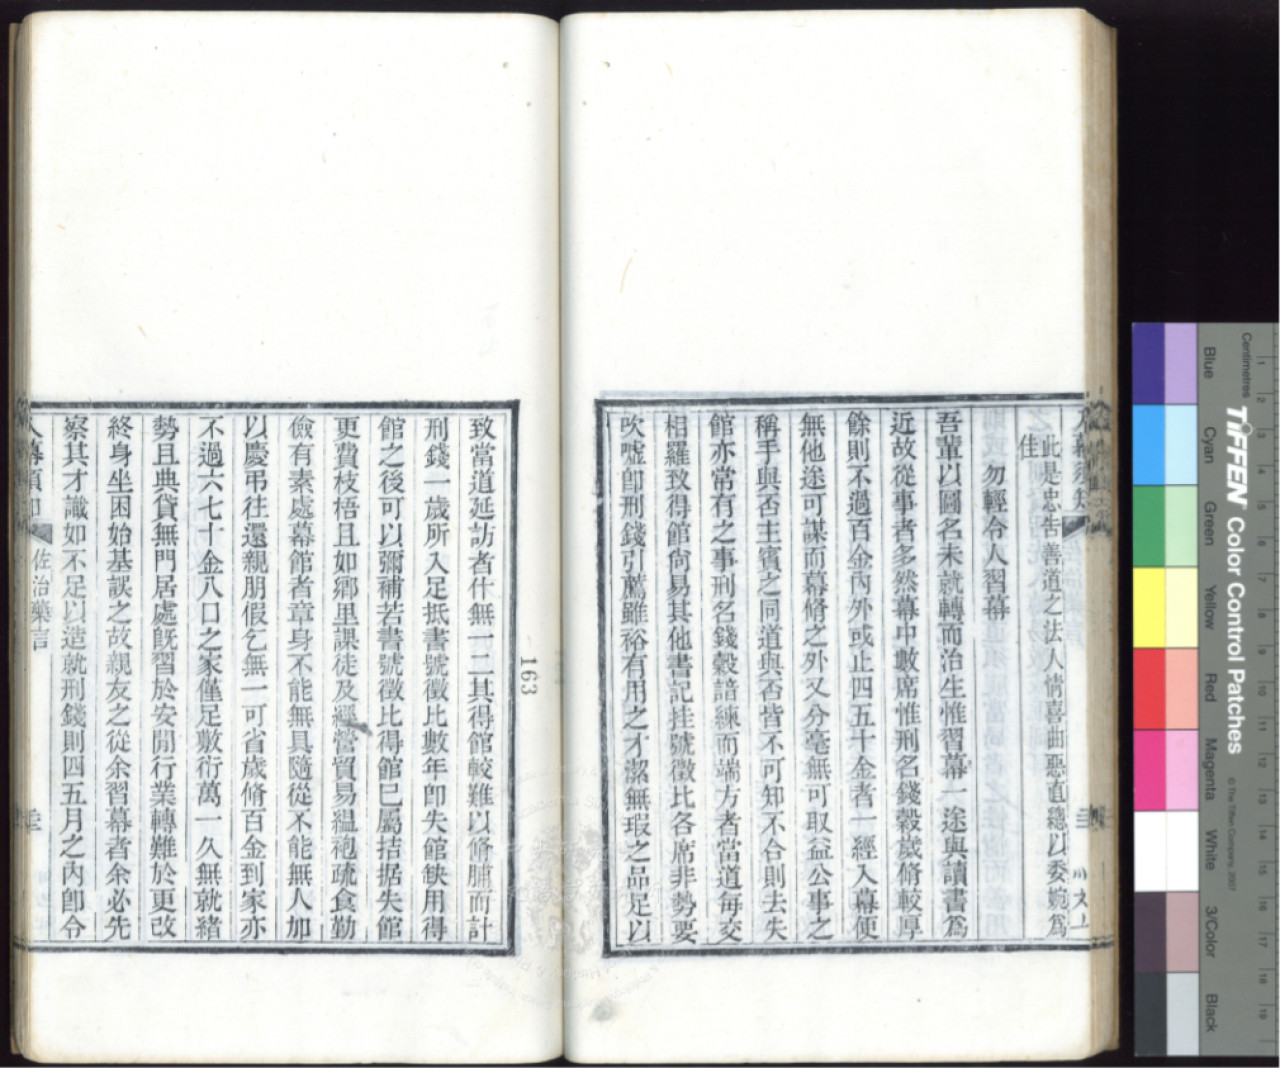 此是忠告善道之法人情喜曲惡直總以委婉爲
佳
勿輕令人習幕
吾輩以圖名未就轉而治生惟習幕一途與讀書爲
近故從事者多然幕中數席惟刑名錢穀歲脩較厚
餘則不過百金內外或止四五十金者一經入幕便
無他途可謀而幕脩之外又分毫無可取益公事之
稱手與否主賓之同道與否皆不可知不合則去失
館亦常有之事刑名錢穀諳練而端方者當道每交
相羅致得館尙易其他書記挂號徵比各席非勢要
吹噓卽刑錢引薦雖裕有用之才潔無瑕之品足以
163
致當道延訪者什無一二其得館較難以脩脯而計
刑錢一歲所入足抵書號徵比數年卽失館缺用得
館之後可以彌補若書號徵比得館已屬拮据失館
更費枝梧且如鄉里課徒及經營貿易縕袍疏食勤
儉有素處幕館者章身不能無具隨從不能無人加
以慶弔往還親朋假乞無一可省歲脩百金到家亦
不過六七十金八口之家僅足敷衍萬一久無就緒
勢且典貸無門居處旣習於安閒行業轉難於更改
終身坐困始基誤之故親友之從余習幕者余必先
察其才識如不足以造就刑錢則四五月之內卽令
佐治藥言
Centimetres
TIFFEN Color Control Patches
© The Tiffen Company, 2007
Blue
Cyan
Green
Yellow
Red
Magenta
White
3/Color
Black